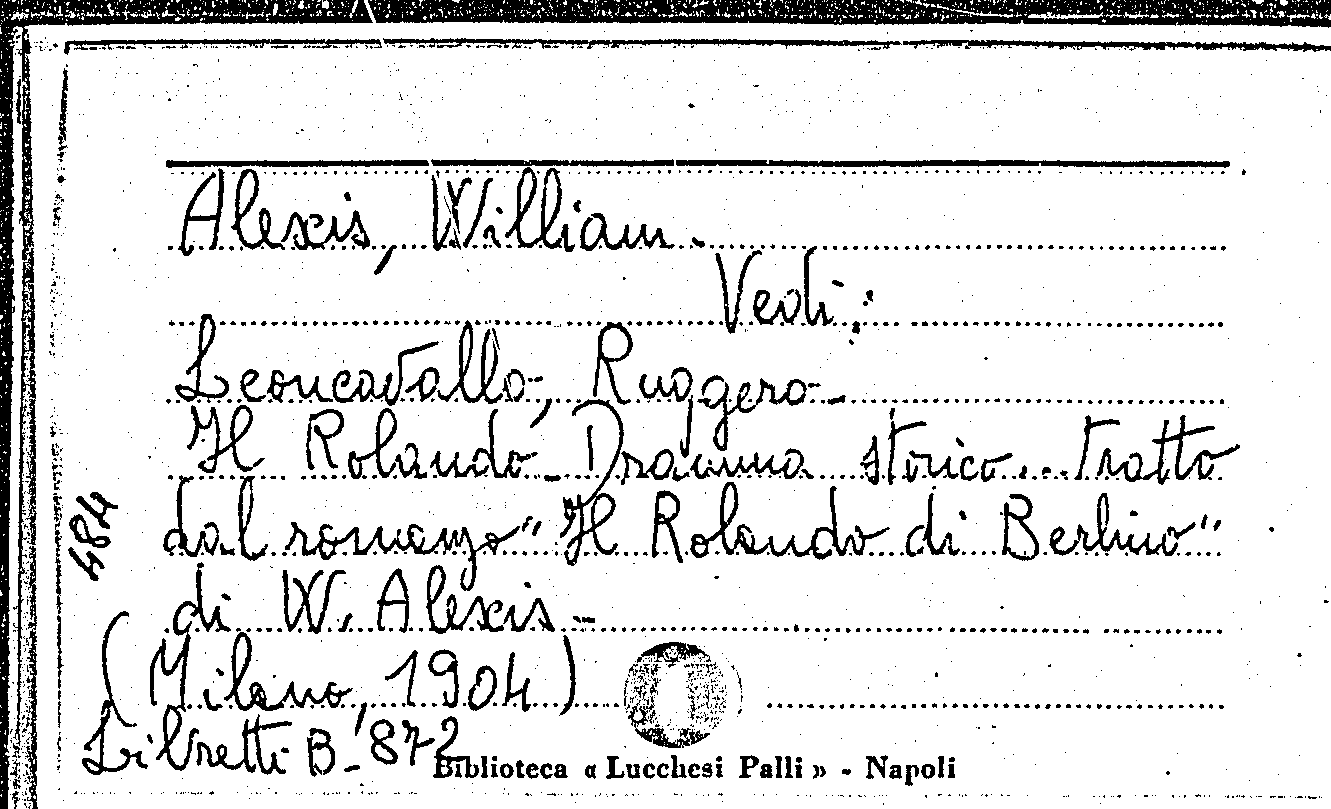 Alexis, William.
Vedi:
Leoncavallo, Ruggero-
Il Rolando - Dramma storico... tratto
dal romanzo "Il Rolando di Berlino"
di W. Alexis -
(Milano, 1904)
Libretti B - 872
Biblioteca « Lucchesi Palli » - Napoli
484